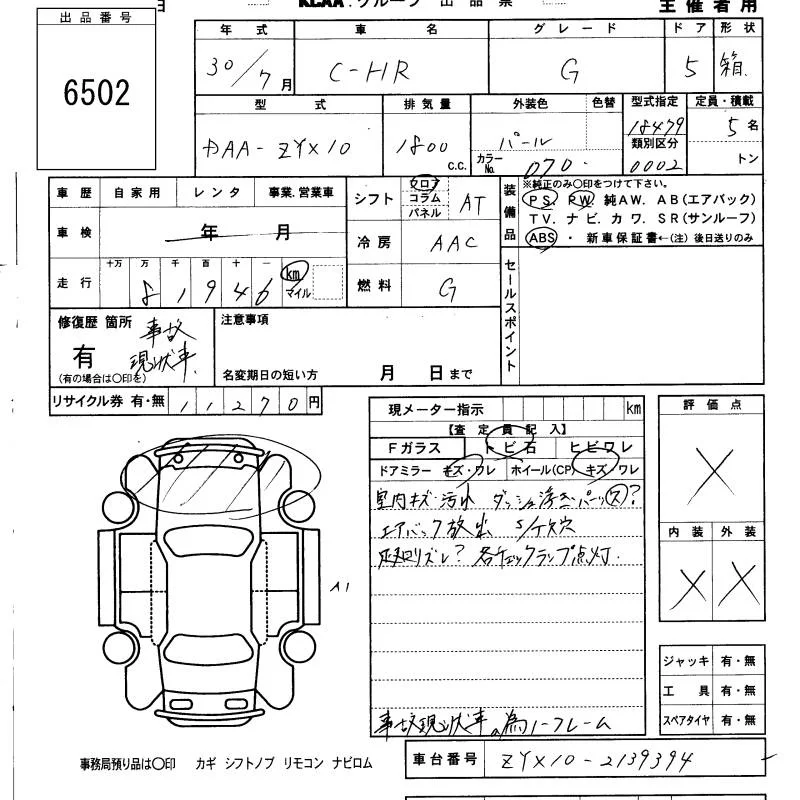 出品番号
6502
KCAA.グループ 出品票
主催者用
年式 車名 グレード ドア 形状
30/7月 C-HR G 5 箱
型式 排気量 外装色 色替 型式指定 定員・積載
DAA-ZYX10 1800 c.c. パール 18479 5名
カラーNo. 070 類別区分 0002 トン
車歴 自家用 レンタ 事業.営業車
車検 年 月
走行 十万 万 千 百 十 一
8 1 9 4 6 km マイル
シフト フロア コラム パネル AT
冷房 AAC
燃料 G
装備品
※純正のみ○印をつけて下さい。
PS. PW. 純AW. AB(エアバック)
TV. ナビ. カワ. SR(サンルーフ)
ABS ・ 新車保証書←(注)後日送りのみ
セールスポイント
修復歴 箇所 事故
有 現状車
(有の場合は○印を)
注意事項
名変期日の短い方 月 日まで
リサイクル券 有・無 11270円
現メーター指示 km
【査定員記入】
Fガラス トビ石 ヒビワレ
ドアミラー キズ・ワレ ホイール(CP) キズ/ワレ
室内キズ・汚れ ダッシュ浮き パーツ欠?
エアバック放出 S/T欠穴
各チェックランプ点灯.
事故現状車の為ノークレーム
評価点
X
内装 外装
X X
ジャッキ 有・無
工具 有・無
スペアタイヤ 有・無
A1
事務局預り品は○印 カギ シフトノブ リモコン ナビロム
車台番号 ZYX10-2139394